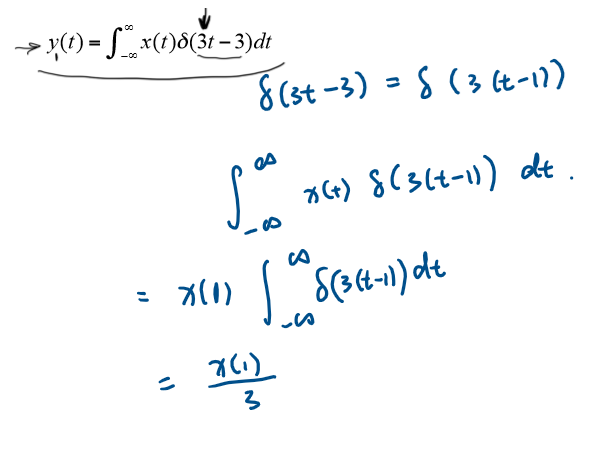 → y(t) = ∫_{-∞}^{∞} x(t)δ(3t − 3)dt
δ(3t − 3) = δ(3(t−1))
∫_{-∞}^{∞} x(t) δ(3(t−1)) dt .
= x(1) ∫_{-∞}^{∞} δ(3(t−1)) dt
= x(1)/3